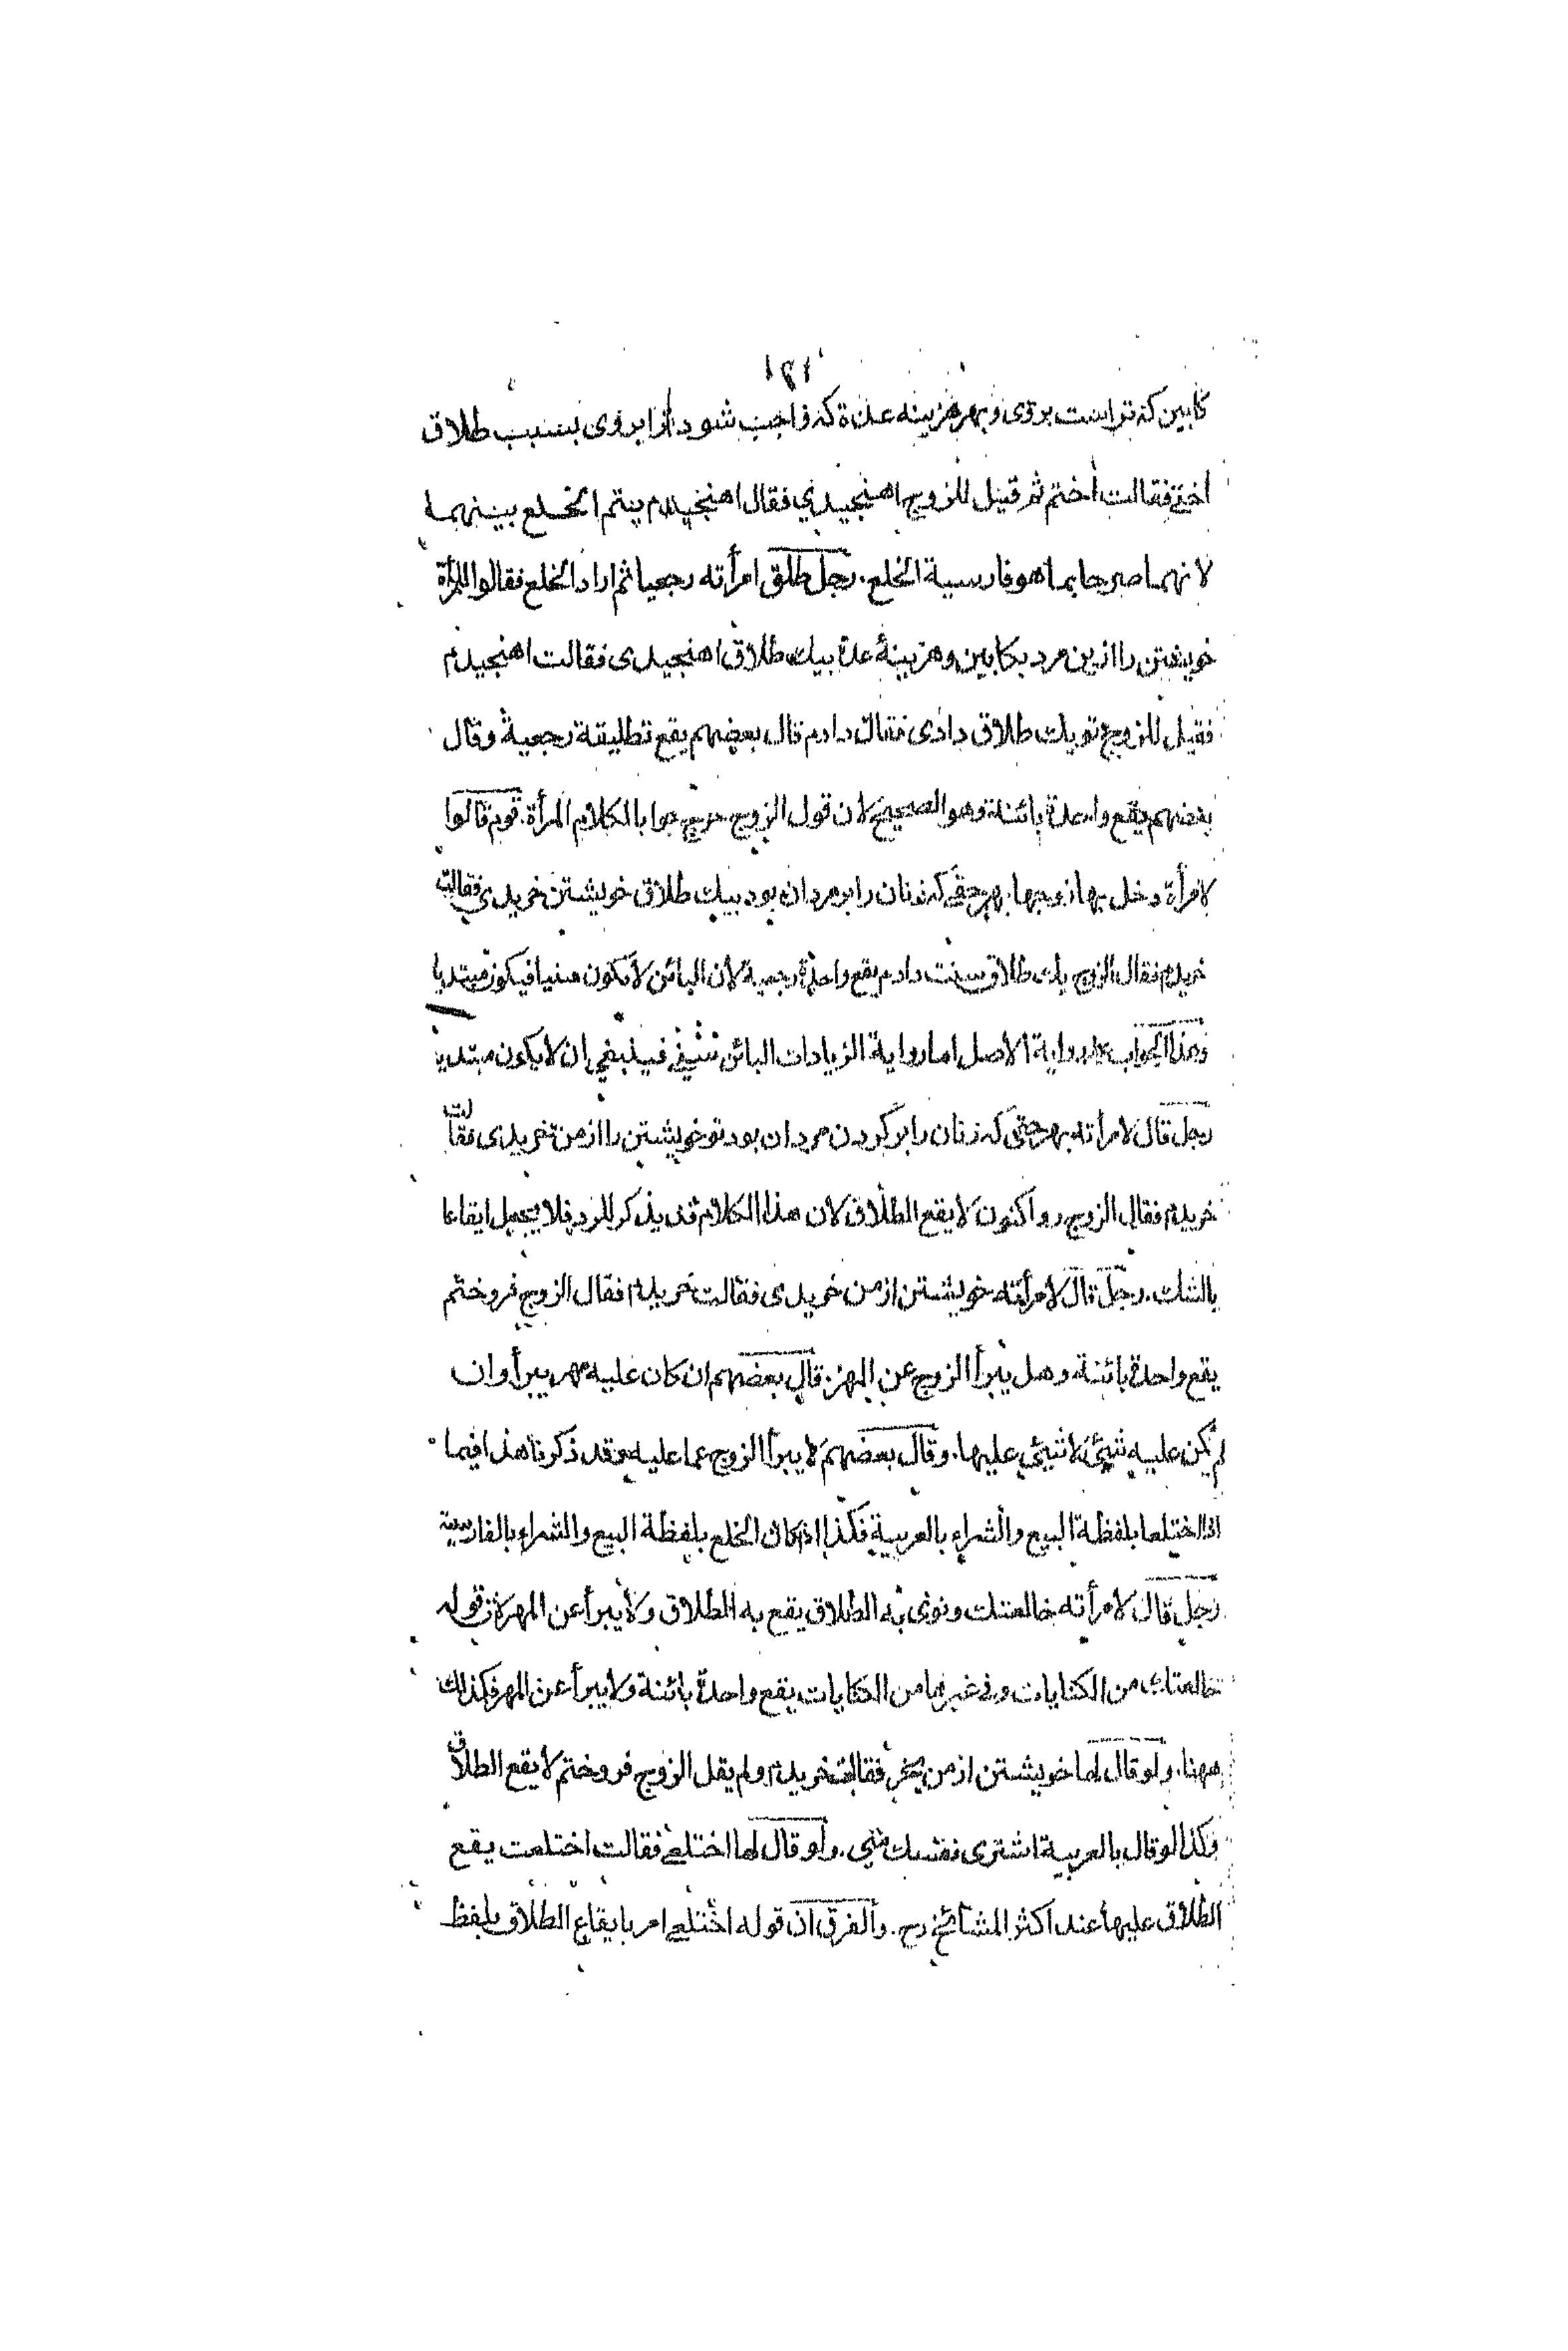 كابين كه تراست بروى وبهر هزينه عدة كه واجب شود ترا بروى بسبب طلاق
اختى فقالت اختم ثم قيل للزوج اهنجيدي فقال اهنجيدم يتم الخلع بينهما
لانهما صرحا بما هو فارسية الخلع. رجل طلق امرأته رجعيا ثم اراد الخلع فقالوا للمرأة
خويشتن را ازين مرد بكابين وهزينهٔ عدة بيك طلاق اهنجيدى فقالت اهنجيدم
فقيل للزوج تو يك طلاق دادى فقال دادم قال بعضهم يقع تطليقة رجعية وقال
بعضهم يقع واحدة بائنة وهو الصحيح لان قول الزوج خرج جوابا لكلام المرأة. قوم قالوا
لامرأة دخل بها زوجها بهر حقى كه زنان را بر مردان بود بيك طلاق خويشتن خريدي فقالت
خريدم فقال الزوج يك طلاق سنت دادم يقع واحدة رجعية لان البائن لا يكون سنيا فيكون مبتديا
وهذا الجواب على رواية الاصل اما رواية الزيادات البائن سني فينبغي ان لا يكون مبتديا
رجل قال لامرأته بهر حقى كه زنان را بر گردن مردان بود تو خويشتن را از من خريدى فقالت
خريدم فقال الزوج رو اكنون لا يقع الطلاق لان هذا الكلام قد يذكر للرد فلا يجعل ايقاعا
بالشك. رجل قال لامرأته خويشتن از من خريدى فقالت خريدم فقال الزوج فروختم
يقع واحدة بائنة وهل يبرأ الزوج عن المهر. قال بعضهم ان كان عليه مهر يبرأ وان
لم يكن عليه شيئ لا شيئ عليها. وقال بعضهم لا يبرأ الزوج عما عليه وقد ذكرنا هذا فيما
اذا اختلعا بلفظة البيع والشراء بالعربية فكذا اذا كان الخلع بلفظة البيع والشراء بالفارسية
رجل قال لامرأته خالعتك ونوى به الطلاق يقع به الطلاق ولا يبرأ عن المهر لان قوله
خالعتك من الكنايات وفي غيرها من الكنايات يقع واحدة بائنة ولا يبرأ عن المهر فكذلك
ههنا. ولو قال لها خويشتن از من بخر فقالت خريدم ولم يقل الزوج فروختم لا يقع الطلاق
وكذا لو قال بالعربية اشترى نفسك مني. ولو قال لها اختلعي فقالت اختلعت يقع
الطلاق عليها عند اكثر المشائخ رح. والفرق ان قوله اختلعي امر بايقاع الطلاق بلفظ